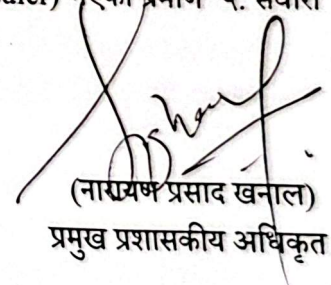 प्रमाण
(नारायण प्रसाद खनाल)
प्रमुख प्रशासकीय अधिकृत